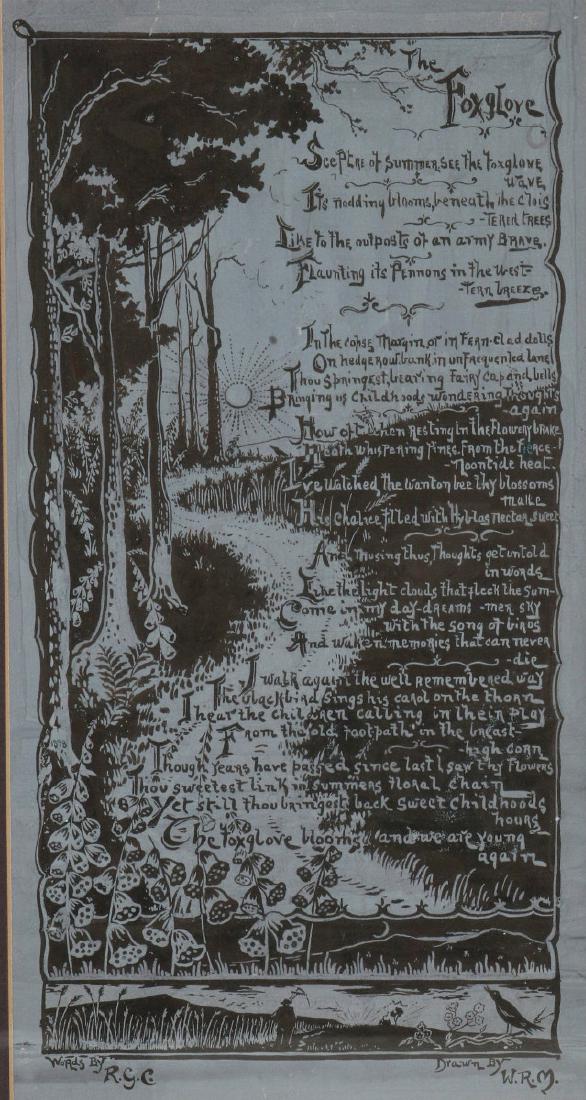 The
Foxglove
Sceptre of Summer, see the foxglove
wave,
Its nodding blooms, beneath the clois
-tered trees
Like to the outposts of an army brave,
Flaunting its Pennons in the west-
-tern breeze
In the copse margin, or in fern-clad dells
On hedgerow bank in unfrequented lane
Thou springest, bearing Fairy cap and bells
Bringing us Childhoods wondering thoughts
again
How oft when resting in the flowery brake
'Neath whispering Pines, from the fierce-
Noontide heat
I've watched the wanton bee thy blossoms
make
His chalice filled with Hyblas nectar sweet
And musing thus, thoughts yet untold
in words
Like the light clouds that fleck the sum-
Come in my day-dreams -mer sky
with the song of birds
And waken memories that can never
-die
I walk again the well remembered way
The blackbird sings his carol on the thorn
I hear the children calling in their play
From the old footpath in the breast-
high corn
Though years have passed since last I saw thy flowers
Thou sweetest link in summers floral chain
Yet still thou bringest back sweet childhoods
hours
The foxglove blooms and we are young
again
Words By
R.G.C.
Drawn By
W.R.M.